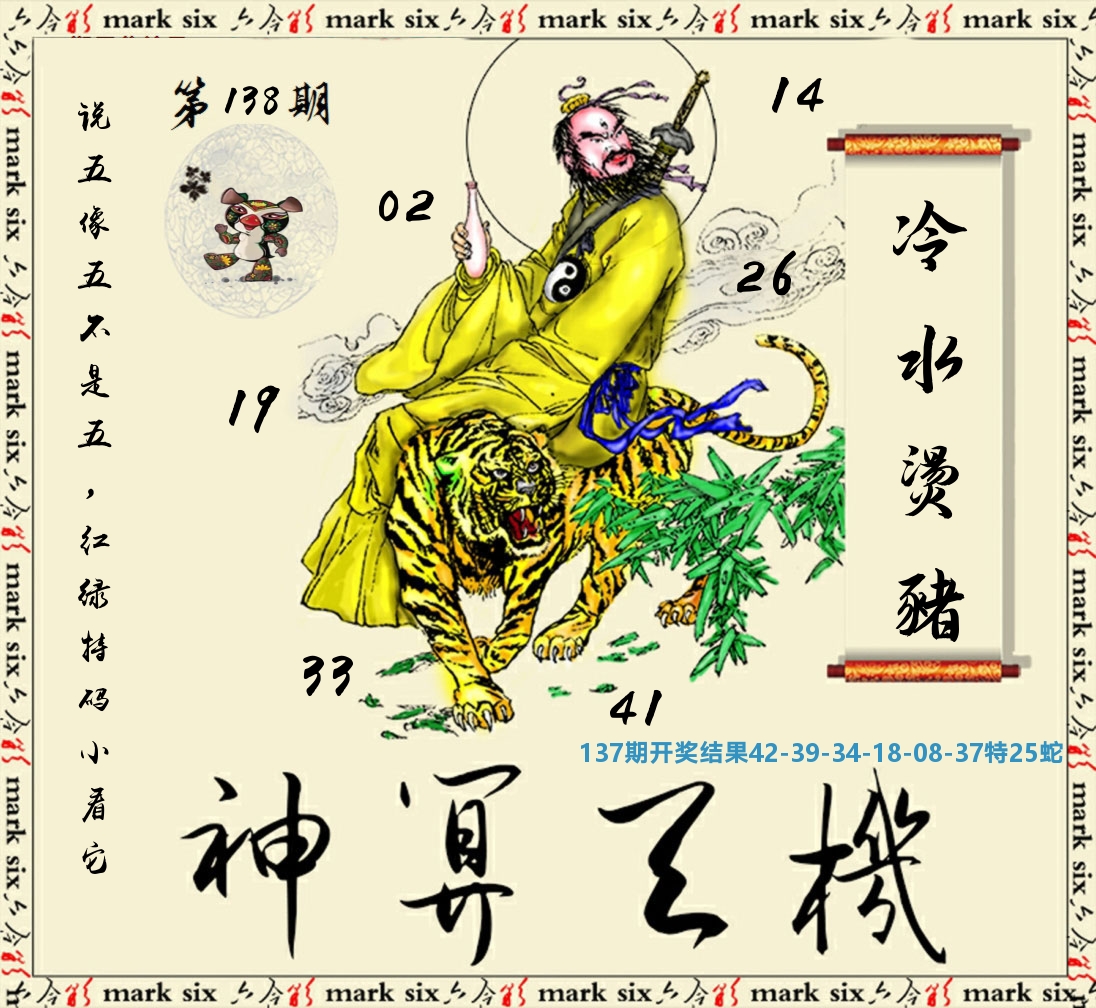 mark six 今彩 mark six 今彩 mark six 今彩 mark six 今彩 mark six
第138期
说五像五不是五，红绿特码小看它
14
02
26
19
33
41
冷水燙豬
137期开奖结果42-39-34-18-08-37特25蛇
神算天機
mark six 今彩 mark six 今彩 mark six 今彩 mark six
mark six 今彩 mark six 今彩 mark six 今彩 mark six
mark six 今彩 mark six 今彩 mark six 今彩 mark six 今彩 mark six